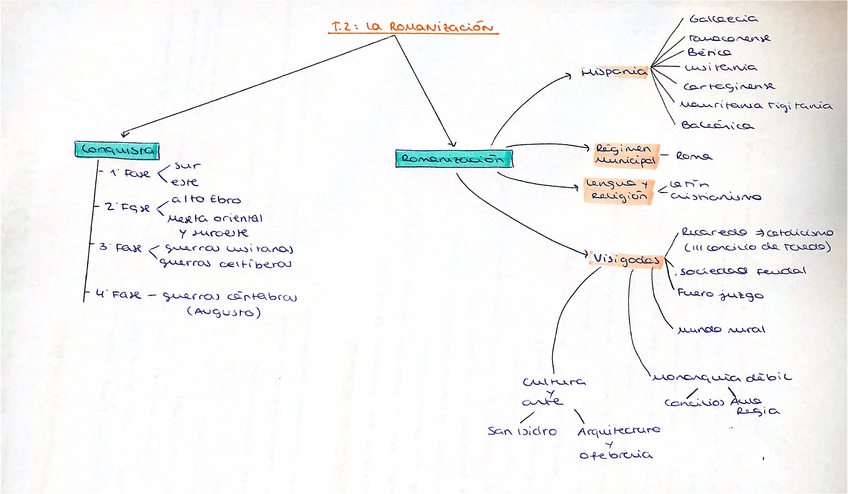 T.2: La Romanización
Conquista
1ª Fase
sur
este
2ª Fase
alto Ebro
meseta oriental
y suroeste
3ª Fase
guerras lusitanas
guerras celtíberas
4ª Fase – guerras cántabras
(Augusto)
Romanización
Hispania
Gallaecia
Tarraconense
Bética
Lusitania
Cartaginense
Mauritania Tigitania
Baleárica
Régimen
Municipal – Roma
Lengua y
Religión
Latín
cristianismo
Visigodos
Ricaredo ⇒ catolicismo
(III concilio de Toledo)
sociedad feudal
Fuero juzgo
mundo rural
Monarquía débil
Concilios
Aula
Regia
Cultura
y
arte
San Isidro
Arquitectura
y
ofebrería